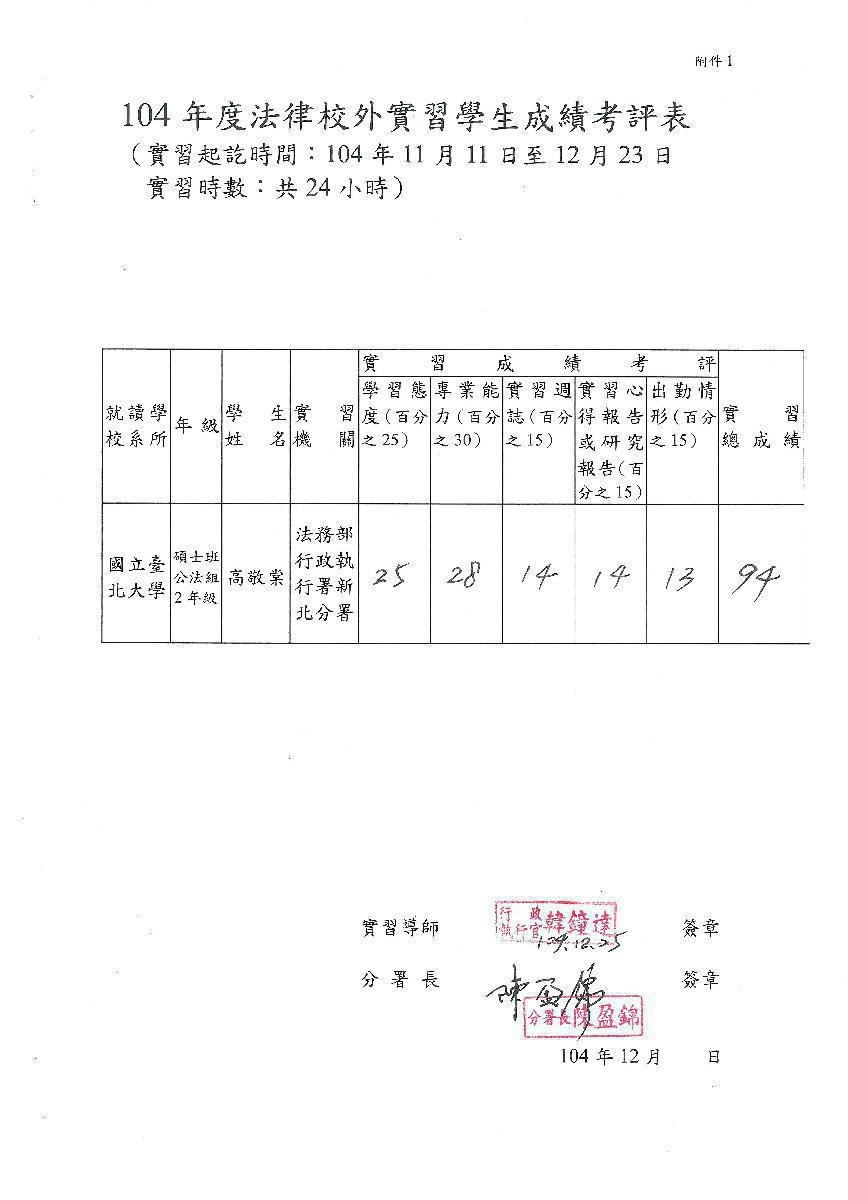 附件 1
104 年度法律校外實習學生成績考評表
（實習起訖時間：104 年 11 月 11 日至 12 月 23 日
實習時數：共 24 小時）
就讀學
校系所
年級
學生
姓名
實習
機關
實習成績考評
學習態
度（百分
之 25）
專業能
力（百分
之 30）
實習週
誌（百分
之 15）
實習心
得報告
或研究
報告（百
分之 15）
出勤情
形（百分
之 15）
實習
總成績
國立臺
北大學
碩士班
公法組
2 年級
高敬棠
法務部
行政執
行署新
北分署
25
28
14
14
13
94
實習導師
行政
執行官
韓鐘達
104.12.25
簽章
分署長
陳盈錦
分署長陳盈錦
簽章
104 年 12 月 日